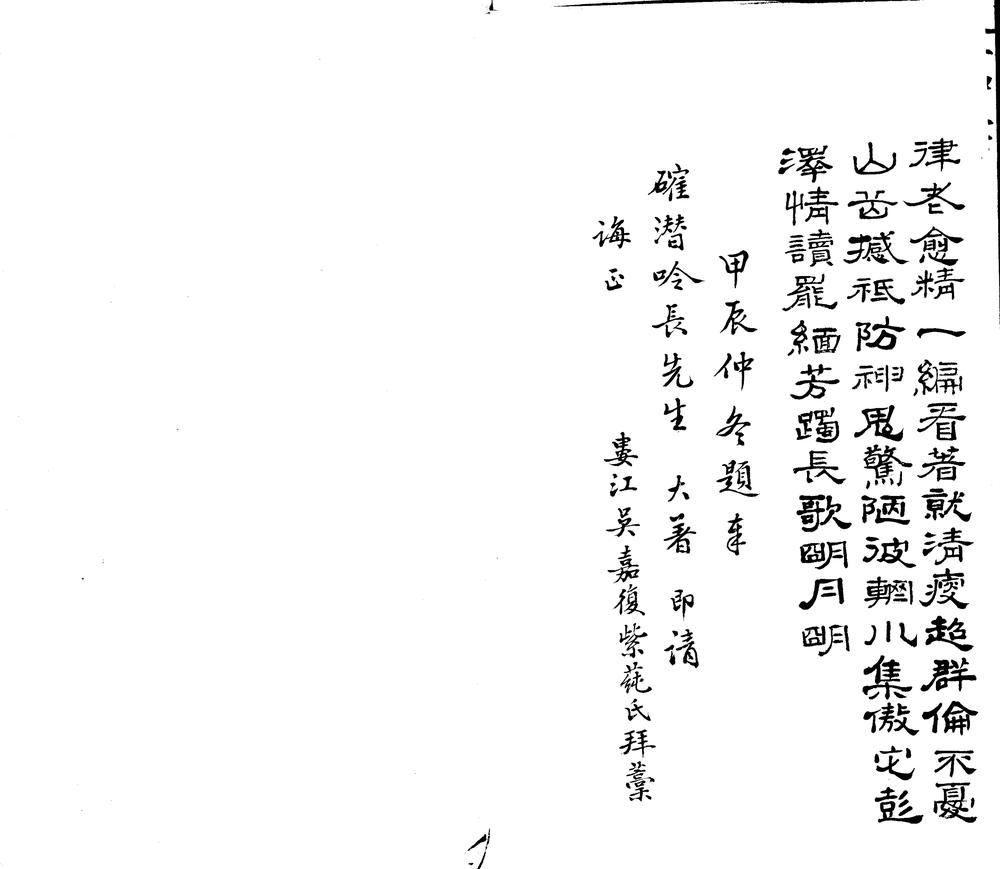 律老愈精一編看著就清瘦超群倫不憂
山岳撼祗防神鬼驚陋彼輞川集傲它彭
澤情讀罷緬芳躅長歌明月明
甲辰仲冬題奉
確潜吟長先生 大著 即請
誨正 婁江吳嘉復紫莼氏拜藁